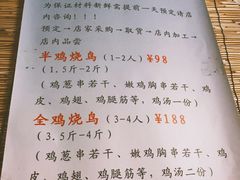 为保证材料新鲜需提前一天预定请店
内咨询!!!
预定→店家采购→取货→店内加工→
店内品尝
半鸡烧鸟(1-2人)¥98
(1.5斤-2斤)
(鸡葱串若干、嫩鸡胸串若干、鸡
皮、鸡翅、鸡腿筋等,鸡汤一份)
全鸡烧鸟(3-4人)¥188
(3.5斤-4斤)
(鸡葱串若干、嫩鸡胸串若干、鸡
皮、鸡翅、鸡腿筋等,鸡汤二份)